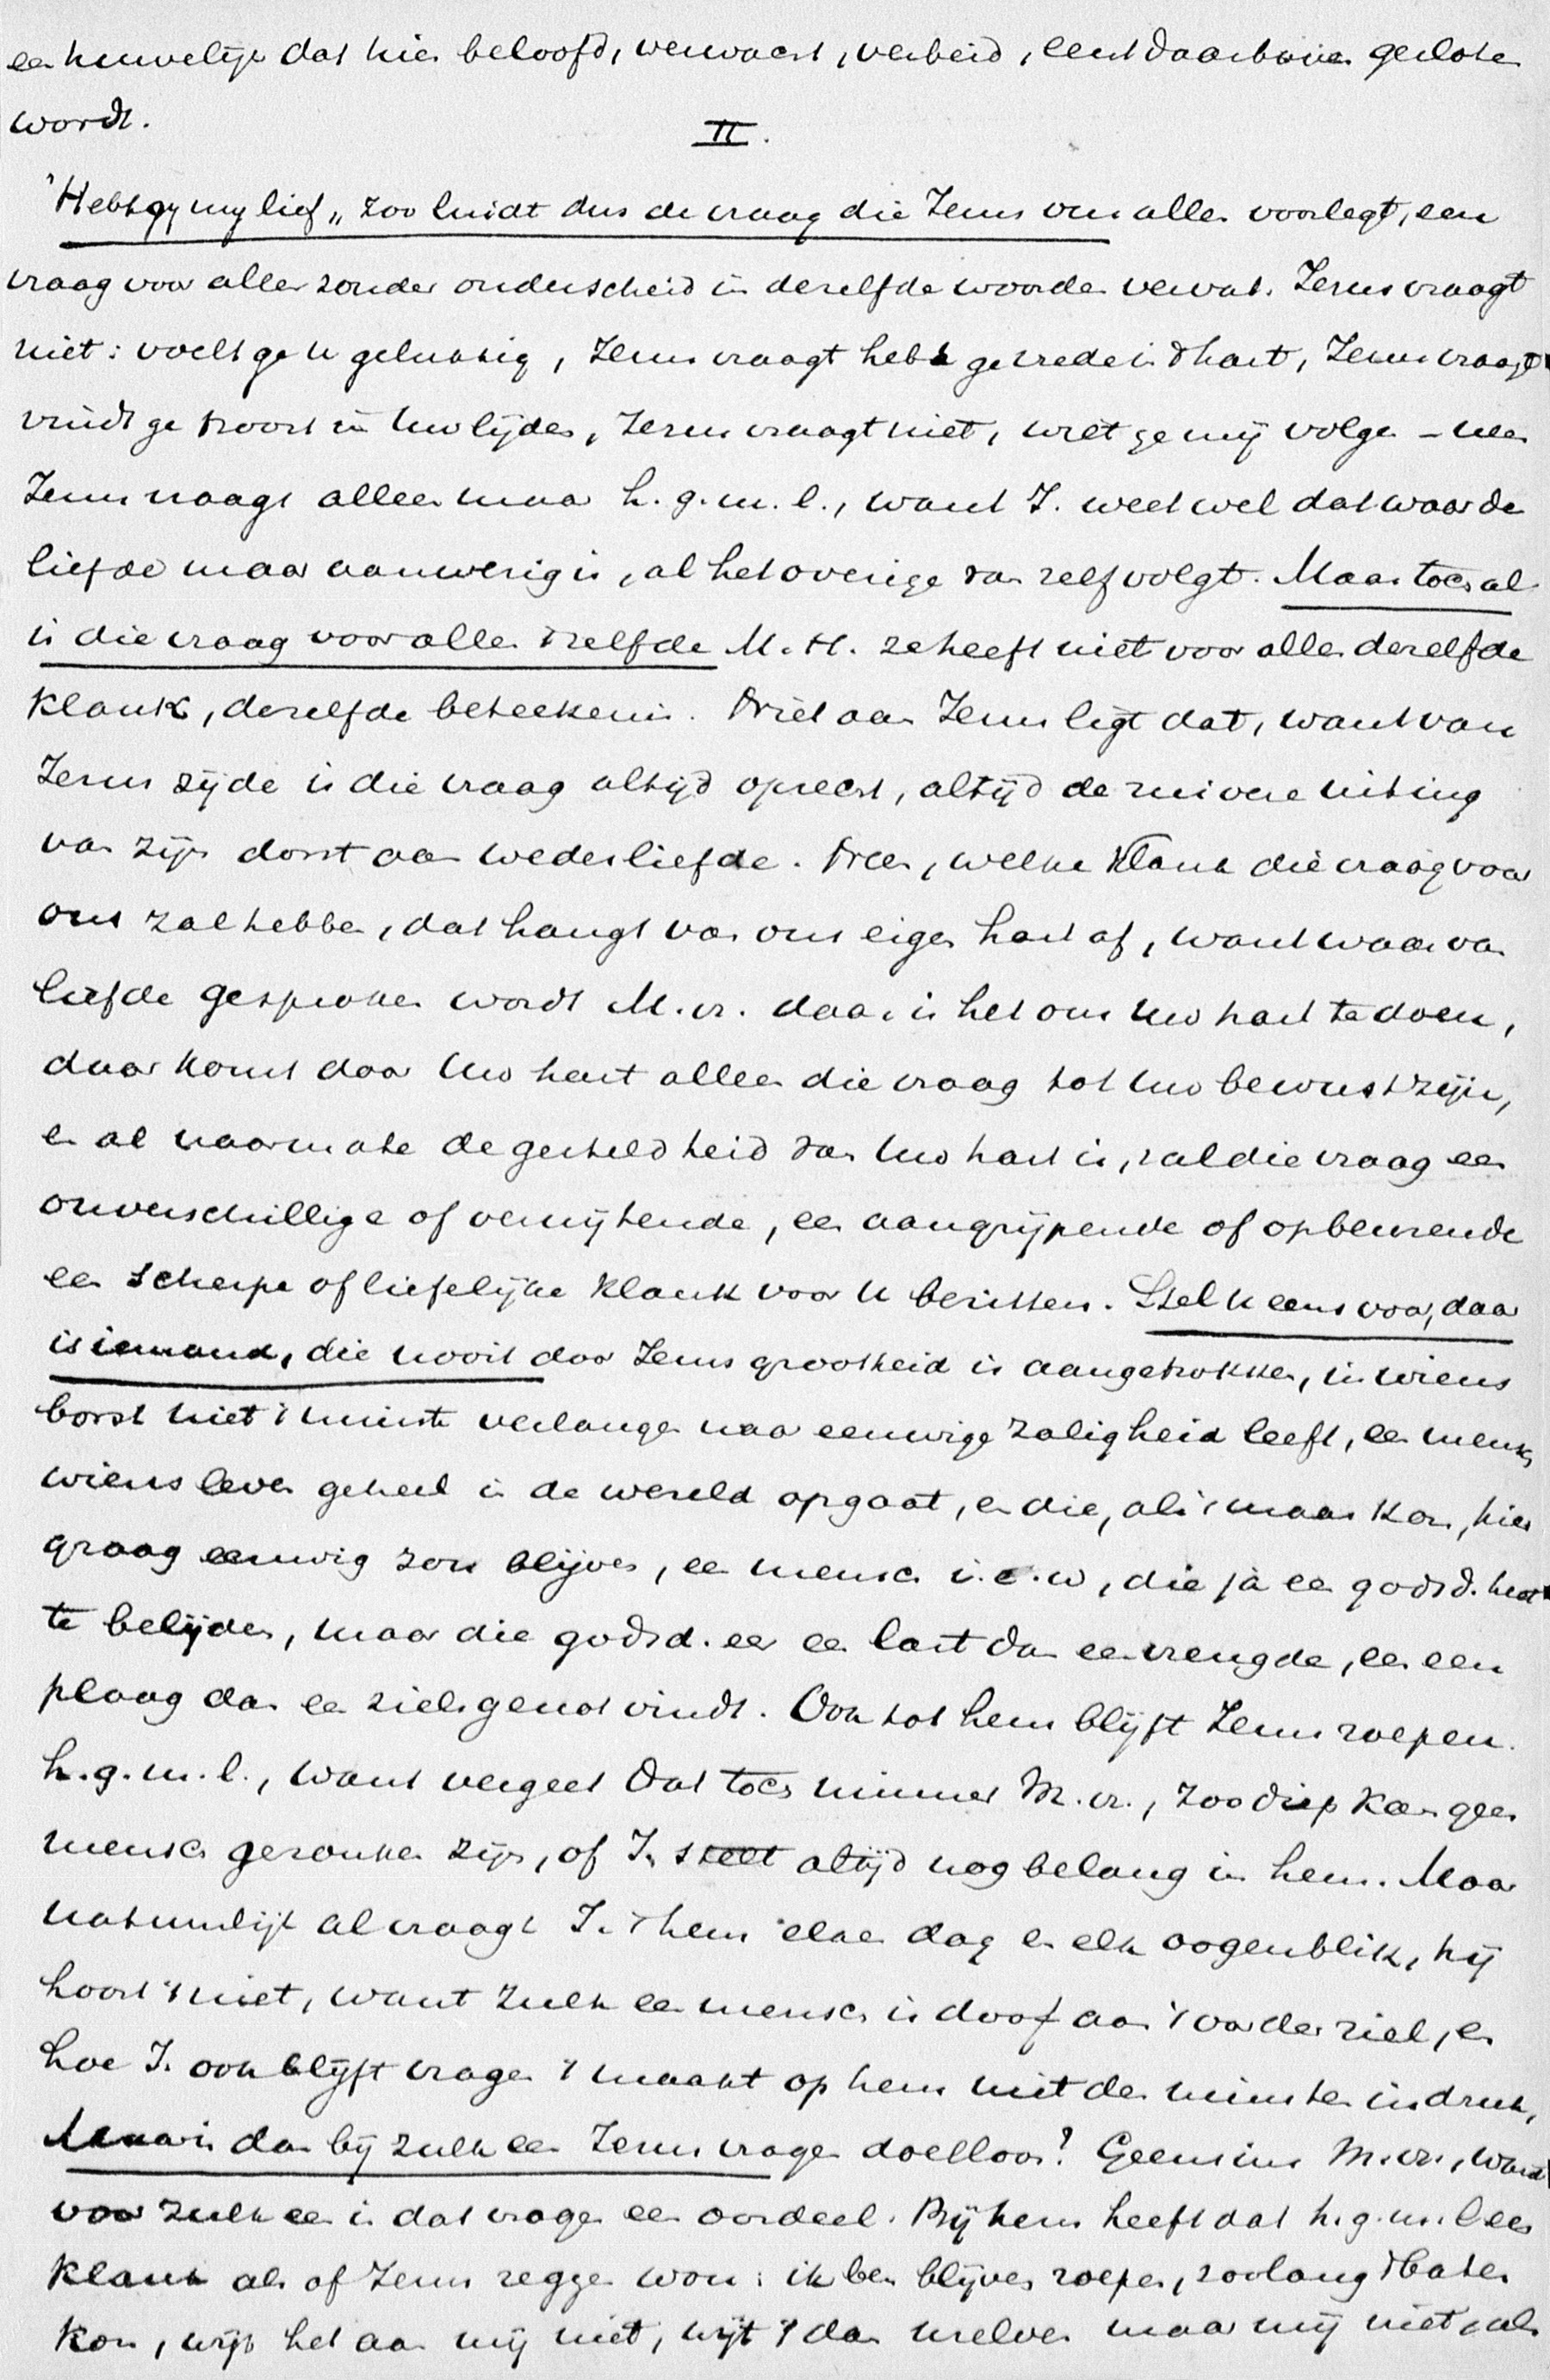 een huwelijk dat hier beloofd, verwacht, verbeid, eerst daarboven gesloten
wordt.
II.
'Hebt gij mij lief„ zoo luidt dus de vraag die Jezus ons allen voorlegt, een
vraag voor allen zonder onderscheid in dezelfde woorden vervat. Jezus vraagt
niet: voelt ge u gelukkig, Jezus vraagt hebt ge vrede in 't hart, Jezus vraagt
vindt ge troost in Uw lijden, Jezus vraagt niet, wilt ge mij volgen - neen
Jezus vraagt alleen maar h. g. m. l., want J. weet wel dat waar de
liefde maar aanwezig is, al het overige van zelf volgt. Maar toch al
is die vraag voor allen 'tzelfde M. H. ze heeft niet voor allen dezelfde
klank, dezelfde beteekenis. Niet aan Jezus ligt dat, want van
Jezus zijde is die vraag altijd oprecht, altijd de zuivere uiting
van zijn dorst aan wederliefde. Neen, welke klank die vraag voor
ons zal hebben, dat hangt van ons eigen hart af, want waar van
liefde gesproken wordt M. vr. daar is het om Uw hart te doen,
daar komt door Uw hart alleen die vraag tot Uw bewustzijn,
en al naarmate de gesteldheid van Uw hart is, zal die vraag een
onverschillige of vernijtende, een aangrijpende of opbeurende
een scherpe of liefelijke klank voor U bezitten. Stel U eens voor, daar
is iemand, die nooit door Jezus grootheid is aangetrokken, in wiens
borst niet 't minste verlangen naar eeuwige zaligheid leeft, een mensch
wiens leven geheel in de wereld opgaat, en die, als 't maar kon, hier
graag eeuwig zou blijven, een mensch i. e. w, die ja een godsd. heet
te belijden, maar die godsd. eer een last dan een vreugde, eer een
plaag dan een zielsgenot vindt. Ook tot hem blijft Jezus roepen.
h. g. m. l., want vergeet dat toch nimmer M. vr., zoo diep kan geen
mensch gezonken zijn, of J. stelt altijd nog belang in hem. Maar
natuurlijk al vraagt J. 't hem elken dag en elk oogenblik, hij
hoort 't niet, want zulk een mensch is doof aan 't oor der ziel, en
hoe J. ook blijft vragen 't maakt op hem niet den minsten indruk,
Maar is dan bij zulk een Jezus vragen doelloos? Geenszins M. vr., want
voor zulk een is dat vragen een oordeel. Bij hem heeft dat h. g. m. l. een
klank als of Jezus zeggen wou: ik ben blijven roepen, zoolang 't baten
kon, wijt het aan mij niet, wijt 't dan uzelven maar mij niet, als